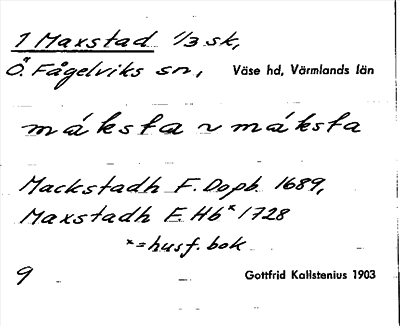 1 Maxstad 1/3 sk,
Ö. Fågelviks sn, Väse hd, Värmlands län
máksta ~ máksta
Mackstadh F.Dopb. 1689,
Maxstadh F.Hb* 1728
*=husf. bok
9 Gottfrid Kallstenius 1903